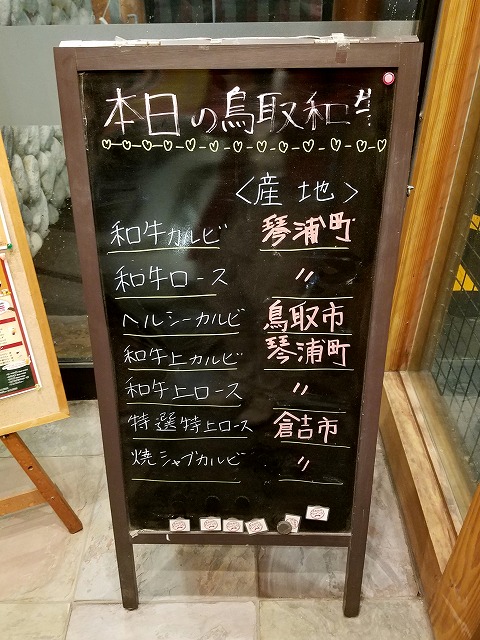 本日の鳥取和牛
<産地>
和牛カルビ 琴浦町
和牛ロース 〃
ヘルシーカルビ 鳥取市
和牛上カルビ 琴浦町
和牛上ロース 〃
特選特上ロース 倉吉市
焼シャブカルビ 〃